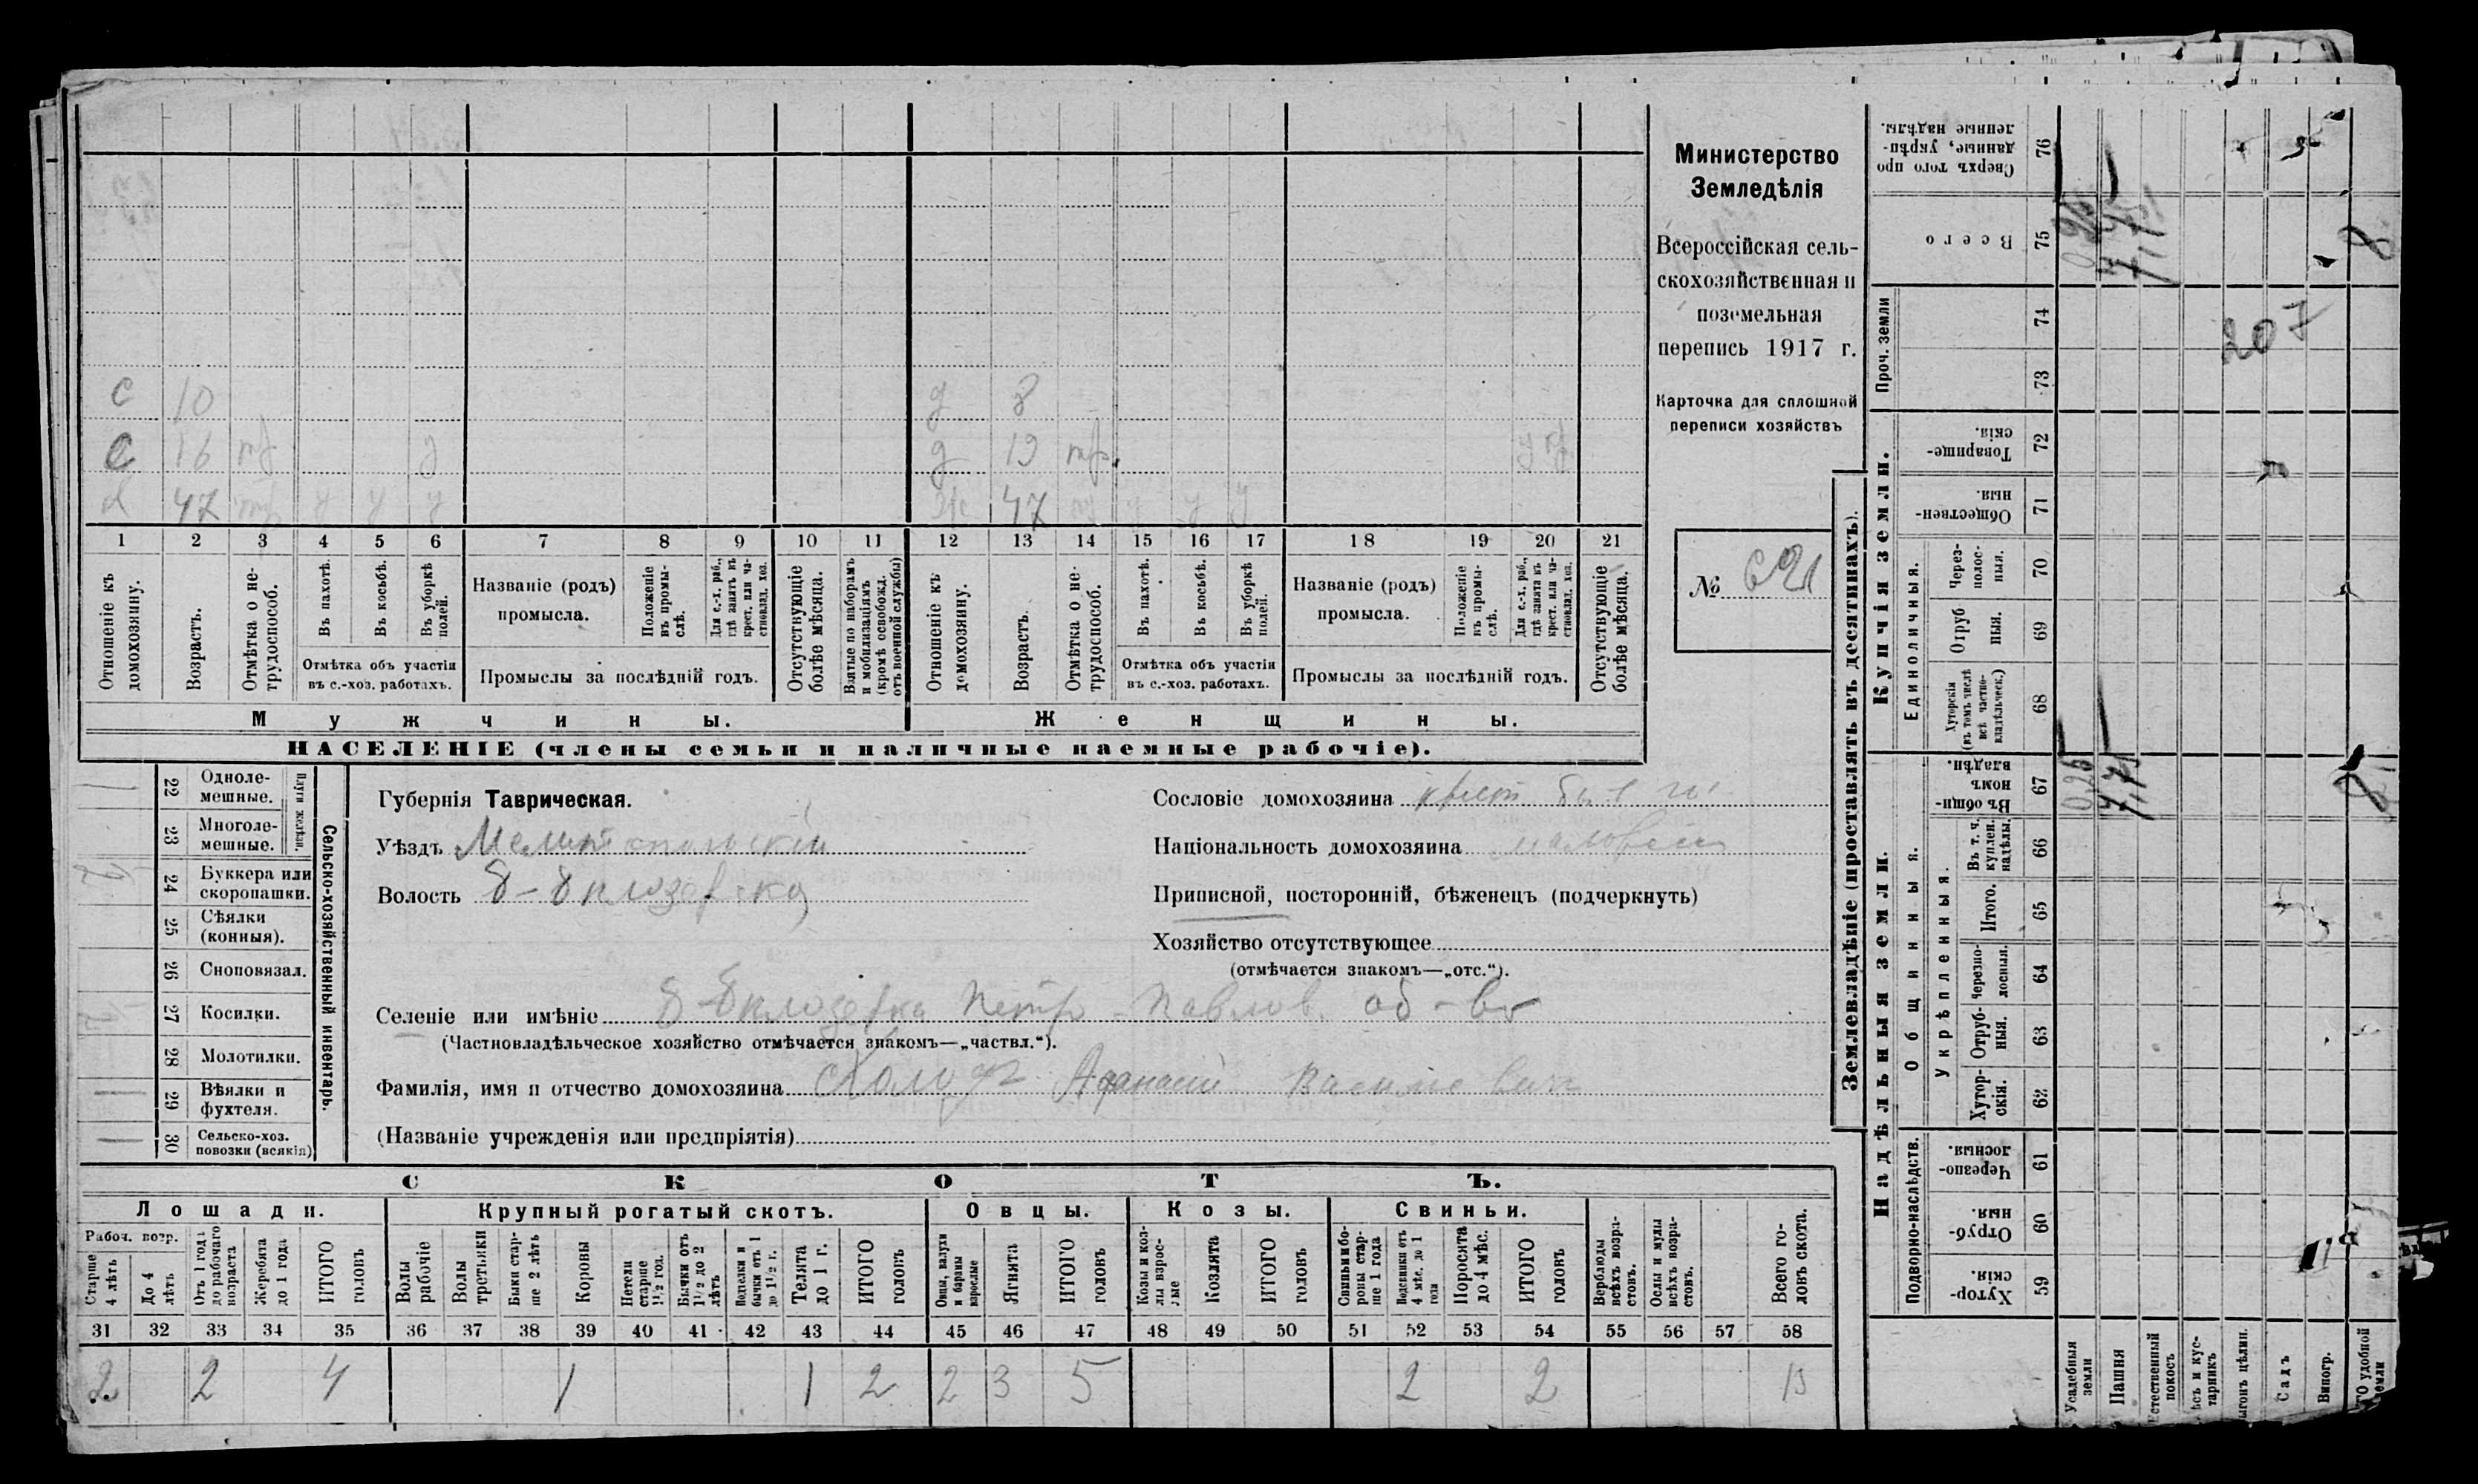 Министерство
Земледѣлія
Всероссійская сель-
скохозяйственная и
поземельная
перепись 1917 г.
Карточка для сплошной
переписи хозяйствъ
№ 621
с 10
с 16
47
д 8
д 19
47
1 2 3 4 5 6 7 8 9 10 11 12 13 14 15 16 17 18 19 20 21
Отношеніе къ домохозяину.
Возрастъ.
Отмѣтка о не-трудоспособ.
Въ пахотѣ.
Въ косьбѣ.
Въ уборкѣ полей.
Отмѣтка объ участіи
въ с.-хоз. работахъ.
Названіе (родъ)
промысла.
Положеніе въ промы-слѣ.
Для с.-х. раб., гдѣ занятъ въ крест. или ча-стновлад. хоз.
Промыслы за послѣдній годъ.
Отсутствующіе болѣе мѣсяца.
Взятые по наборамъ и мобилизаціямъ (кромѣ освобожд. отъ военной службы)
Отношеніе къ домохозяину.
Возрастъ.
Отмѣтка о не-трудоспособ.
Въ пахотѣ.
Въ косьбѣ.
Въ уборкѣ полей.
Отмѣтка объ участіи
въ с.-хоз. работахъ.
Названіе (родъ)
промысла.
Положеніе въ промы-слѣ.
Для с.-х. раб., гдѣ занята въ крест. или ча-стновлад. хоз.
Промыслы за послѣдній годъ.
Отсутствующіе болѣе мѣсяца.
Мужчины.
Женщины.
НАСЕЛЕНІЕ (члены семьи и наличные наемные рабочіе).
Сельско-хозяйственный инвентарь.
Плуги желѣзн.
22 Одноле-
мешные.
23 Многоле-
мешные.
24 Буккера или
скоропашки.
25 Сѣялки
(конныя).
26 Сноповязал.
27 Косилки.
28 Молотилки.
29 Вѣялки и
фухтеля.
30 Сельско-хоз.
повозки (всякія)
Губернія Таврическая.
Уѣздъ Мелитопольскій
Волость Б-Бѣлозерская
Сословіе домохозяина крест
Національность домохозяина малорос
Приписной, посторонній, бѣженецъ (подчеркнуть)
Хозяйство отсутствующее
(отмѣчается знакомъ—„отс.“).
Селеніе или имѣніе Б-Бѣлозерка Петро-Павлов. об-во
(Частновладѣльческое хозяйство отмѣчается знакомъ—„частвл.“).
Фамилія, имя и отчество домохозяина Афанасій Васильевич
(Названіе учрежденія или предпріятія)
СКОТЪ.
Лошади.
Крупный рогатый скотъ.
Овцы.
Козы.
Свиньи.
Рабоч. возр.
Старше 4 лѣтъ
До 4 лѣтъ
Отъ 1 года до рабочаго возраста
Жеребята до 1 года
ИТОГО головъ
Волы рабочіе
Волы третьяки
Быки стар-ше 2 лѣтъ
Коровы
Нетели старше 1½ год.
Бычки отъ 1½ до 2 лѣтъ
Подтелки и бычки отъ 1 до 1½ г.
Телята до 1 г.
ИТОГО головъ
Овцы, валухи и бараны взрослые
Ягнята
ИТОГО головъ
Козы и коз-лы взрос-лые
Козлята
ИТОГО головъ
Свиньи и бо-ровы стар-ше 1 года
Подсвинки отъ 4 мѣс. до 1 года
Поросята до 4 мѣс.
ИТОГО головъ
Верблюды всѣхъ возра-стовъ.
Ослы и мулы всѣхъ возра-стовъ.
Всего го-ловъ скота.
31 32 33 34 35 36 37 38 39 40 41 42 43 44 45 46 47 48 49 50 51 52 53 54 55 56 57 58
2 2 4 1 1 2 2 3 5 2 2 13
Землевладѣніе (проставлять въ десятинахъ).
Надѣльныя земли.
Купчія земли.
Проч. земли
Подворно-наслѣдств.
Общинныя.
Укрѣпленныя.
Единоличныя.
Сверхъ того про-данные, укрѣп-ленные надѣлы. 76
Всего 75
74
73
Товарище-скія. 72
Обществен-ныя. 71
Через-полос-ныя. 70
Отруб-ныя. 69
Хуторскія (въ томъ числѣ всѣ частно-владѣльческ.) 68
Въ общи-номъ владѣн. 67
Въ т. ч. куплен. надѣлы. 66
Итого. 65
Черезпо-лосныя. 64
Отруб-ныя. 63
Хутор-скія. 62
Черезпо-лосныя. 61
Отруб-ныя. 60
Хутор-скія. 59
Усадебныя земли
Пашня
Естественный покосъ
Садъ
Виногр.
0,25
7,75
8
207